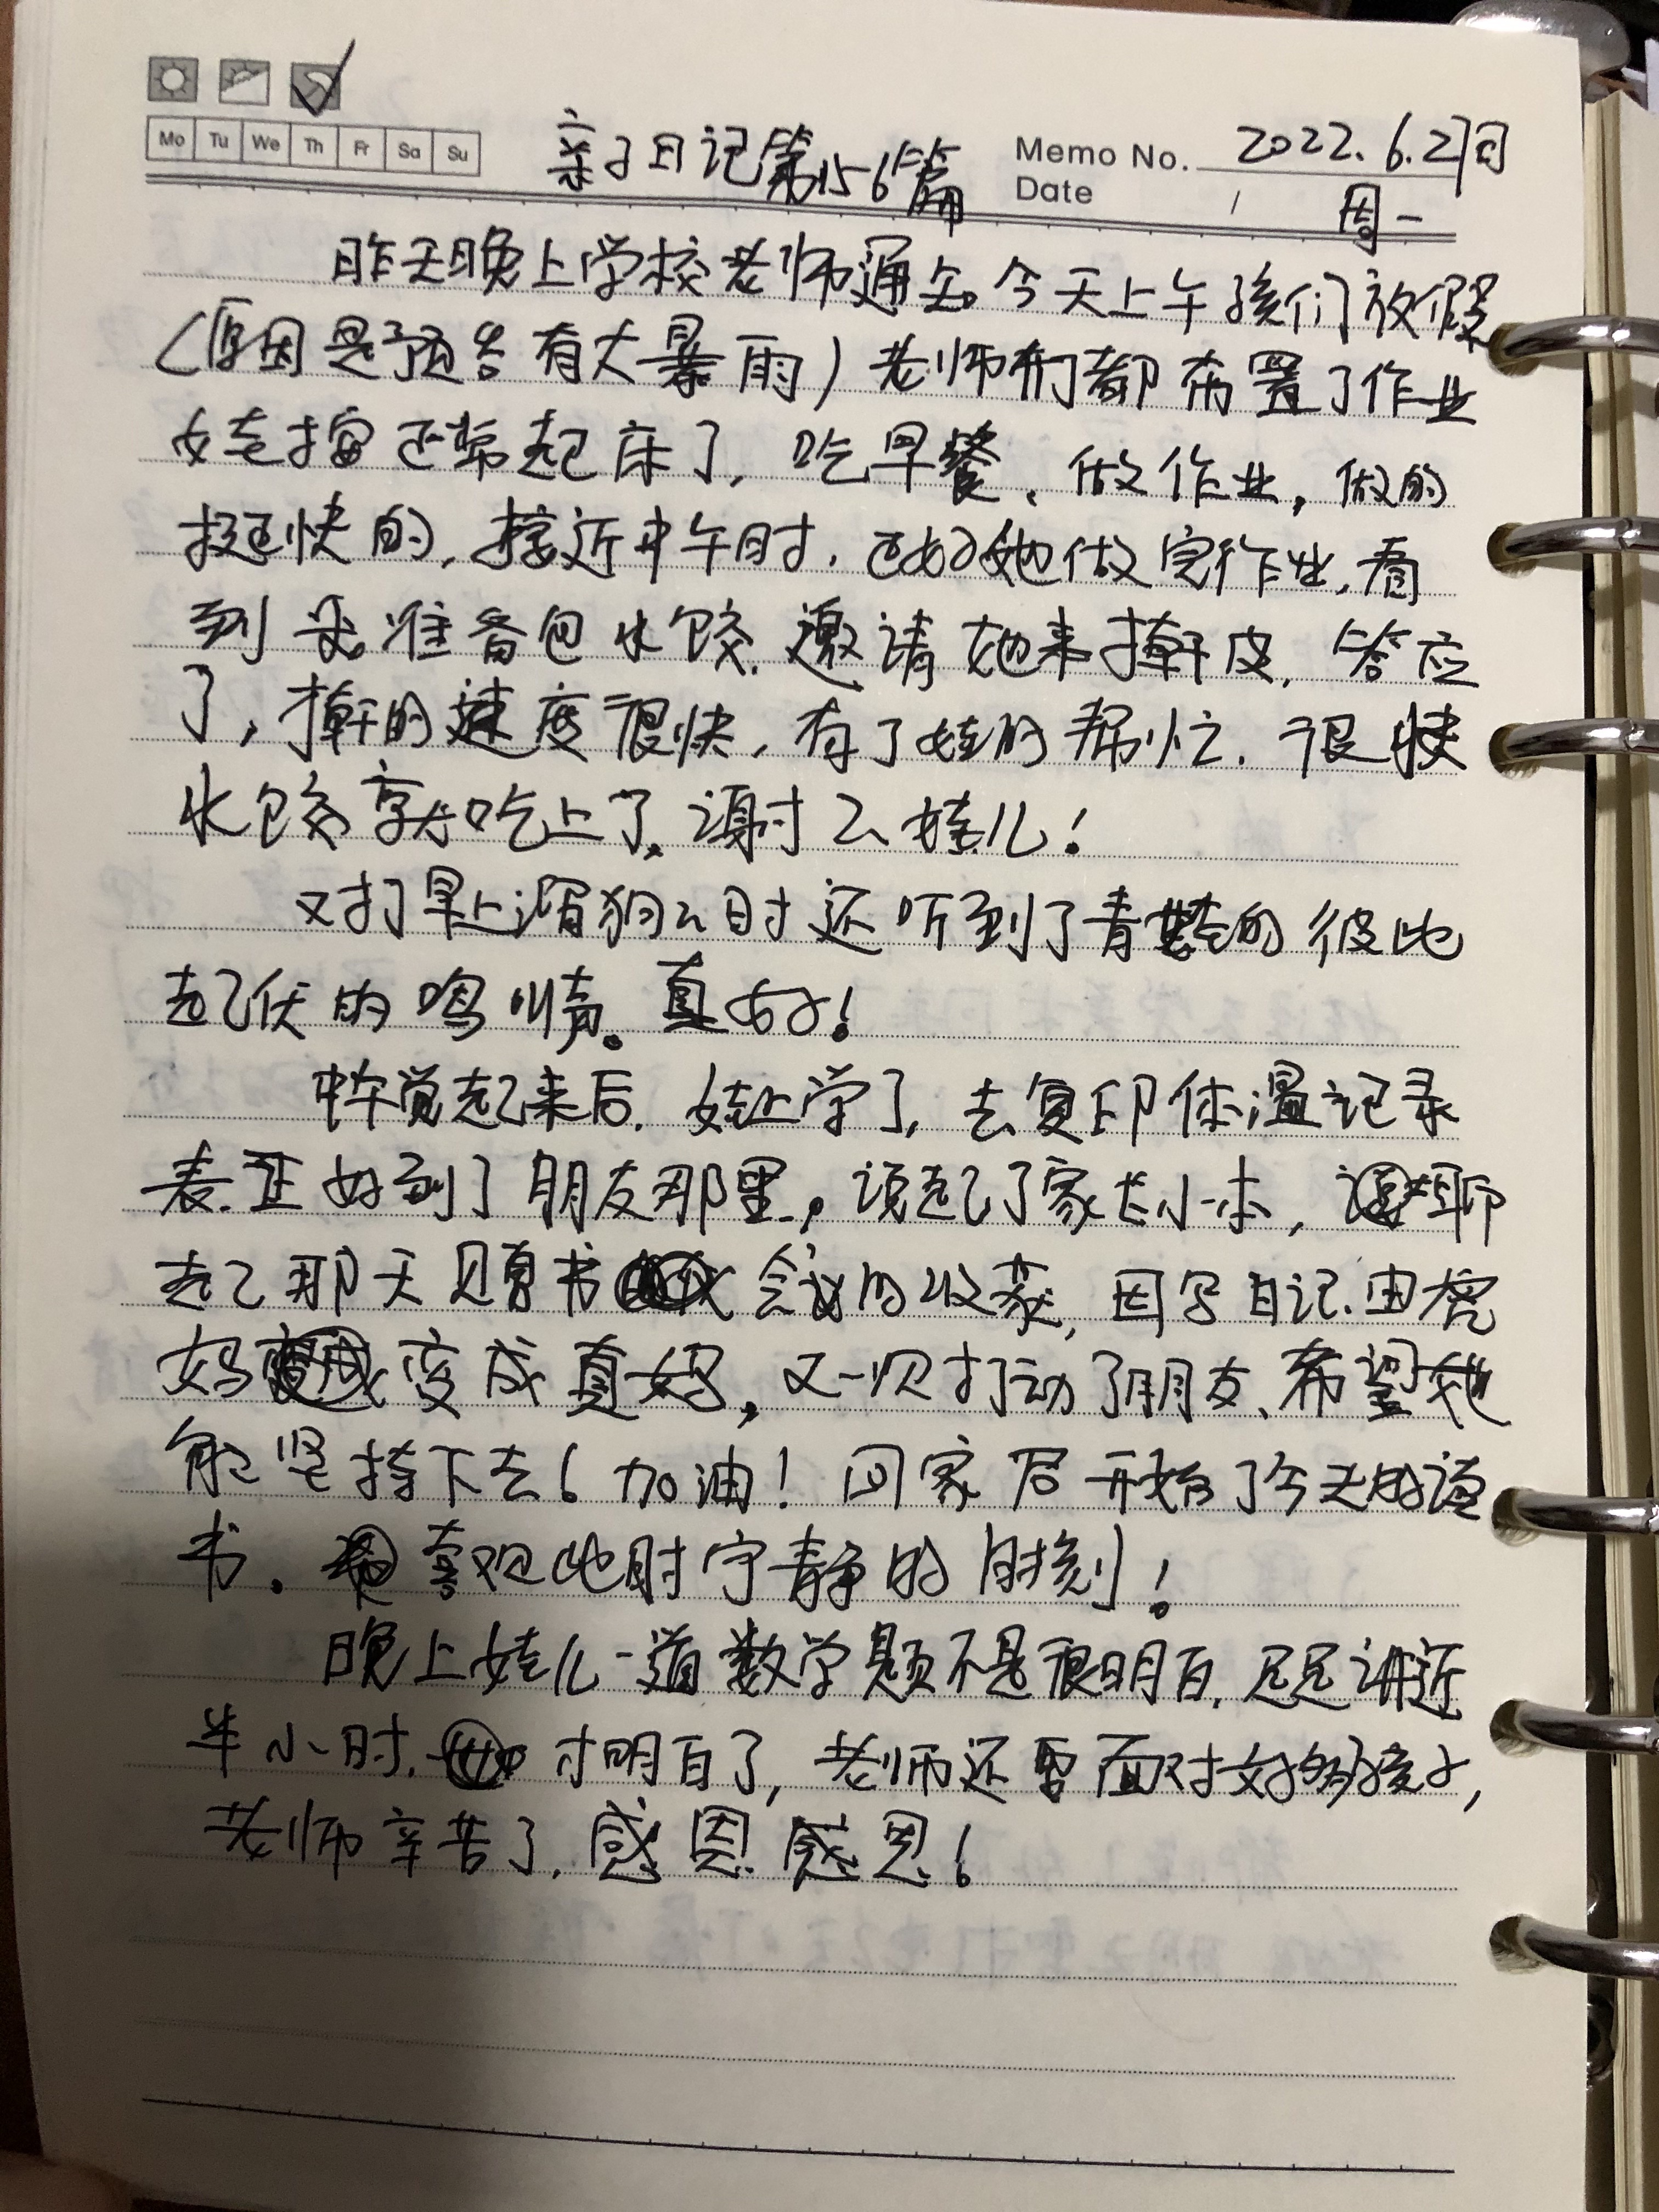 Mo Tu We Th Fr Sa Su
亲子日记第156篇
Memo No. 2022.6.27日
Date / 周一
昨天晚上学校老师通知今天上午孩们放假
(原因是预告有大暴雨)老师们都布置了作业
女娃按正常起床了,吃早餐、做作业,做的
挺快的,接近中午时,正好她做完作业,看
到我准备包水饺,邀请她来擀皮,答应
了,擀的速度很快,有了娃的帮忙,很快
水饺享吃上了,谢谢娃儿!
对早上遛狗时还听到了青蛙的彼此
起伏的鸣叫声。真好!
中午觉起来后,娃上学了,去复印体温记录
表,正好到了朋友那里,说起了家长小本,聊
起那天见真书会议的收获,因写日记,由虎
妈变成真妈,又一次打动了朋友、希望她
能坚持下去!加油!回家后开始了今天的读
书。喜欢此时宁静的时刻!
晚上娃儿一道数学题不是很明白,足足讲近
半小时,才明白了,老师还要面对好多孩子,
老师辛苦了,感恩感恩!